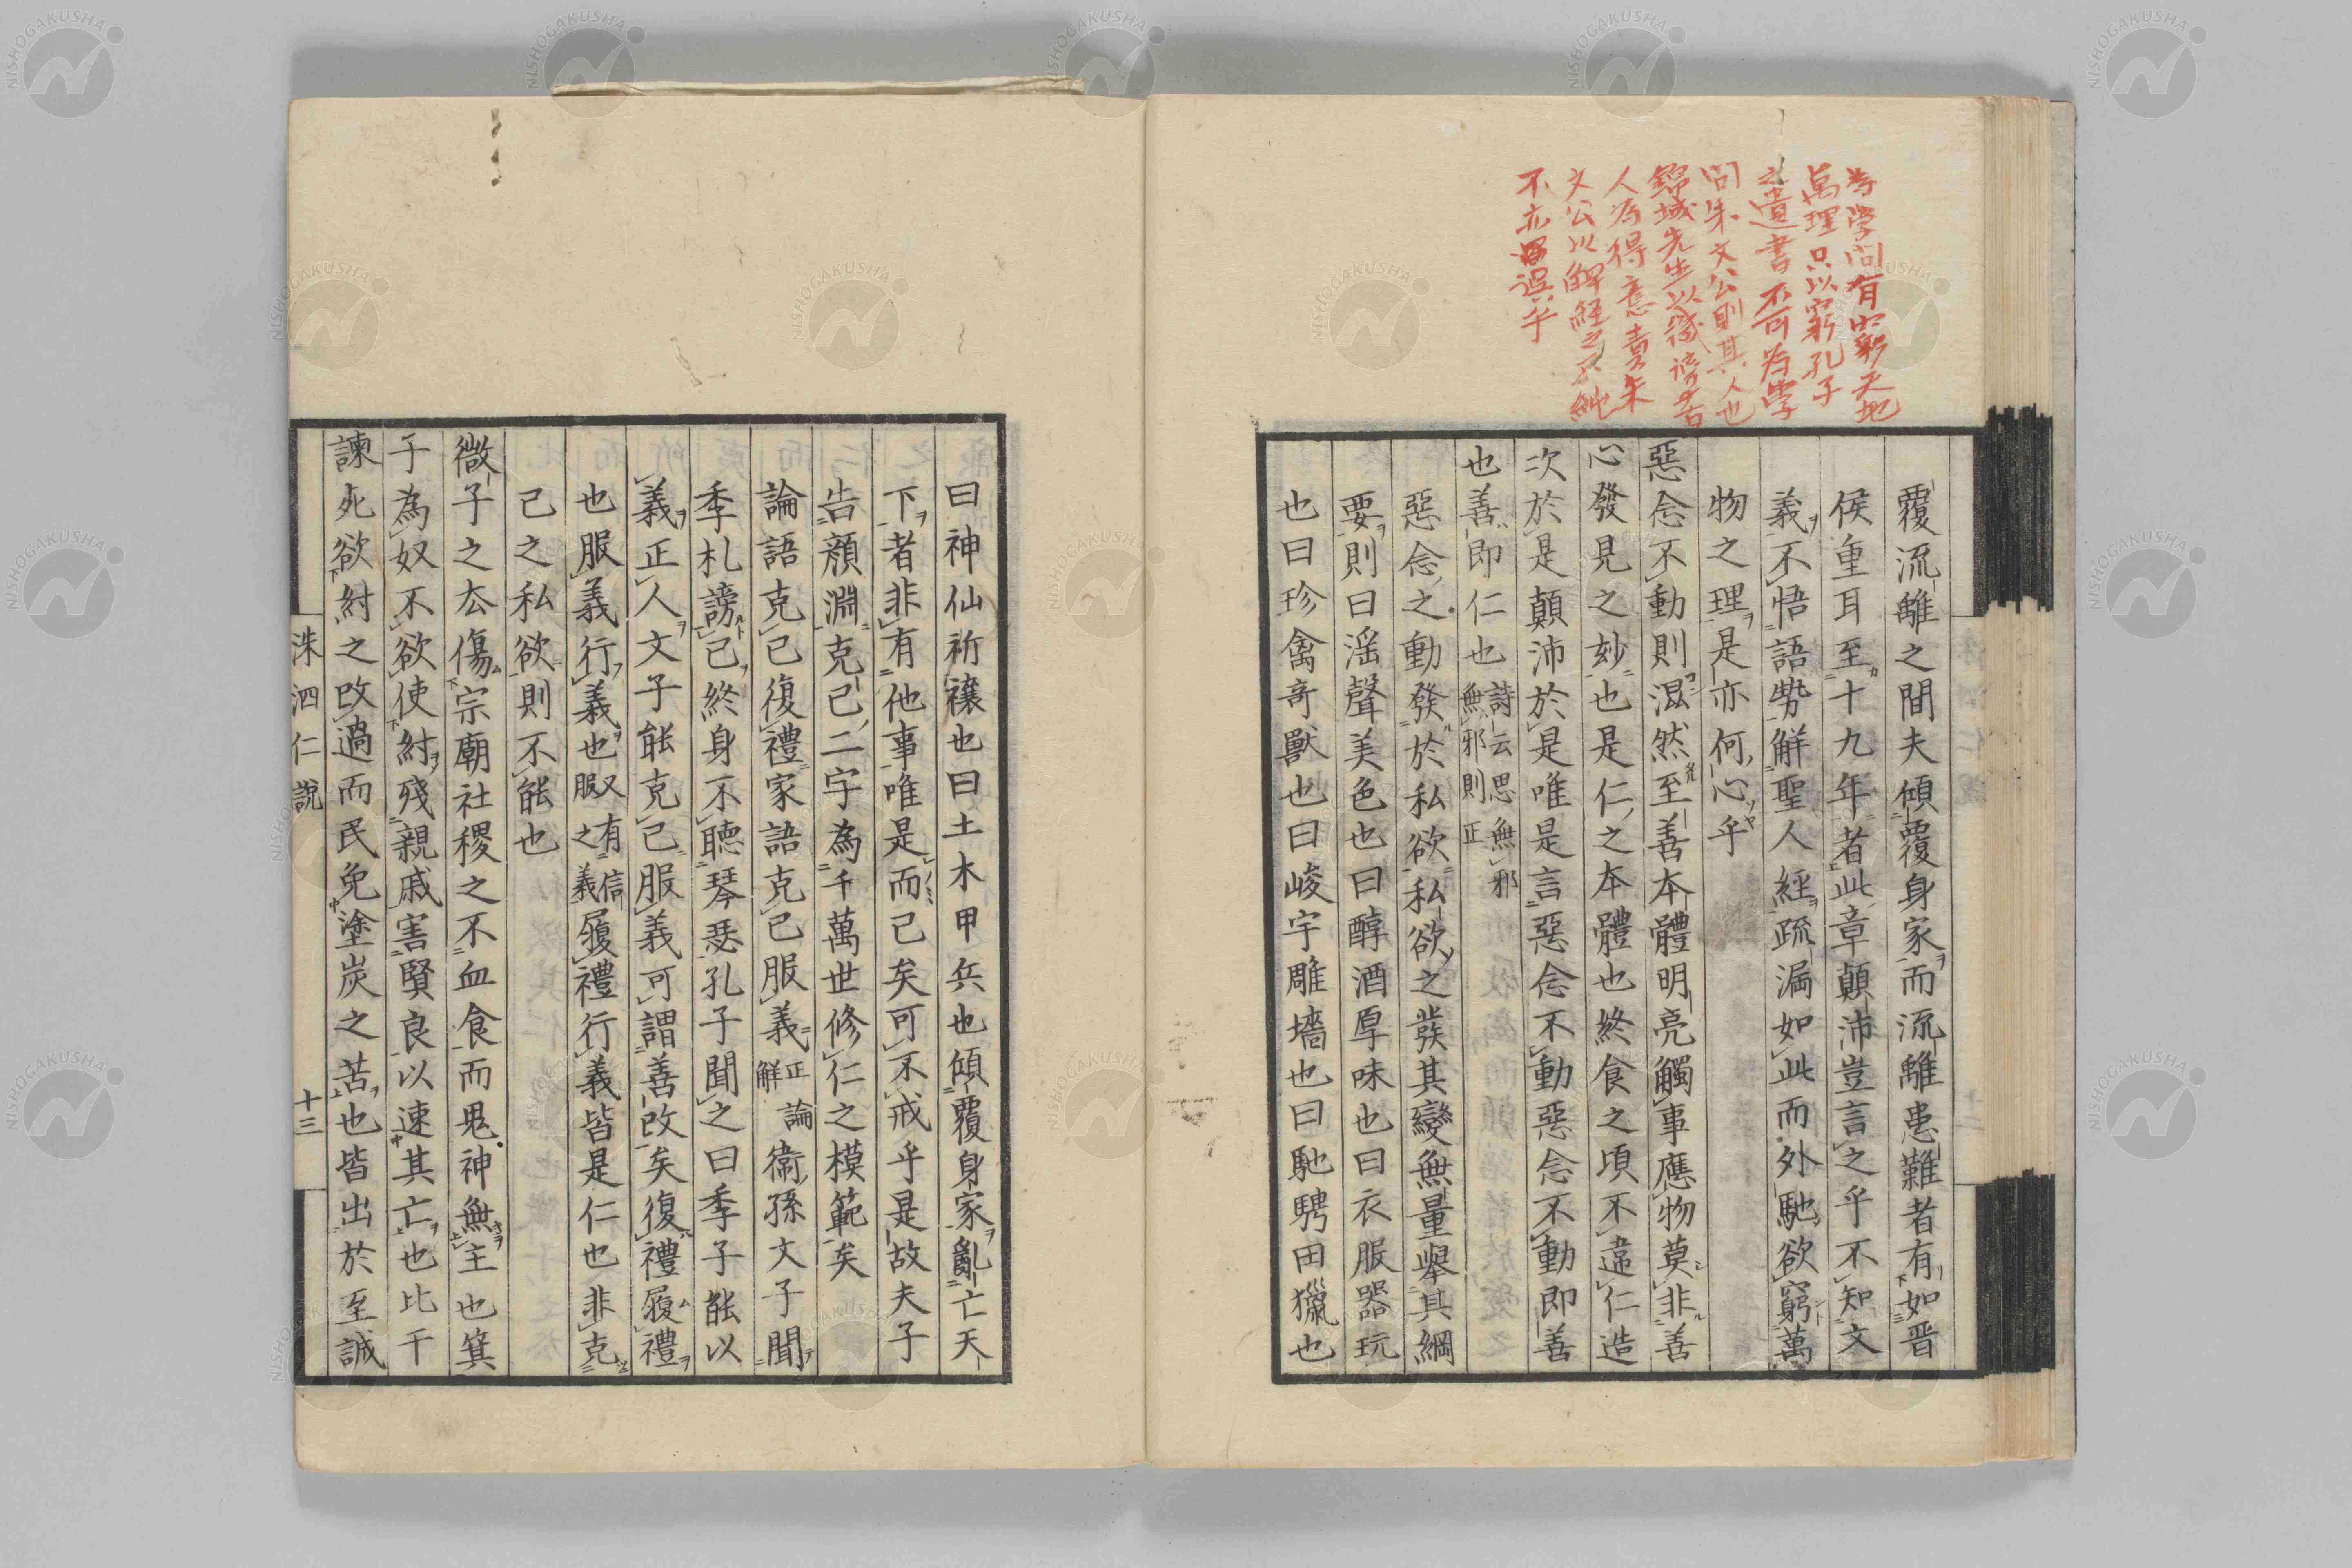 為學問有窮天地
萬理只以窮孔子
之遺書不可為學
問朱文公則其人也
錦城先生以譏謗古
人為得意責朱
文公以解經之不純
不亦過乎
覆流離之間夫傾覆身家而流離患難者有如晋
侯重耳至十九年者此章顛沛豈言之乎不知文
義不悟語勢解聖人經疏漏如此而外馳欲窮萬
物之理是亦何心乎
惡念不動則濕然至善本體明亮觸事應物莫非善
心發見之妙也是仁之本體也終食之頃不違仁造
次於是顛沛於是唯是言惡念不動惡念不動即善
也善即仁也詩云思無邪無邪則正
惡念之動發於私欲私欲之發其變無量舉其綱
要則曰滛聲美色也曰醇酒厚味也曰衣服器玩
也曰珍禽奇獸也曰峻宇雕墻也曰馳騁田獵也
曰神仙祈禳也曰土木甲兵也傾覆身家亂亡天
下者非有他事唯是而已矣可不戒乎是故夫子
告顏淵克己二字為千萬世修仁之模範矣
論語克己復禮家語克己服義正論解衞孫文子聞
季札謗己終身不聽琴瑟孔子聞之曰季子能以
義正人文子能克己服義可謂善改矣復禮履禮
也服義行義也又有服之義信履禮行義皆是仁也非克
己之私欲則不能也
微子之去傷宗廟社稷之不血食而鬼神無主也箕
子為奴不欲使紂殘親戚害賢良以速其亡也比干
諫死欲紂之改過而民免塗炭之苦也皆出於至誠
洙泗仁說 十三